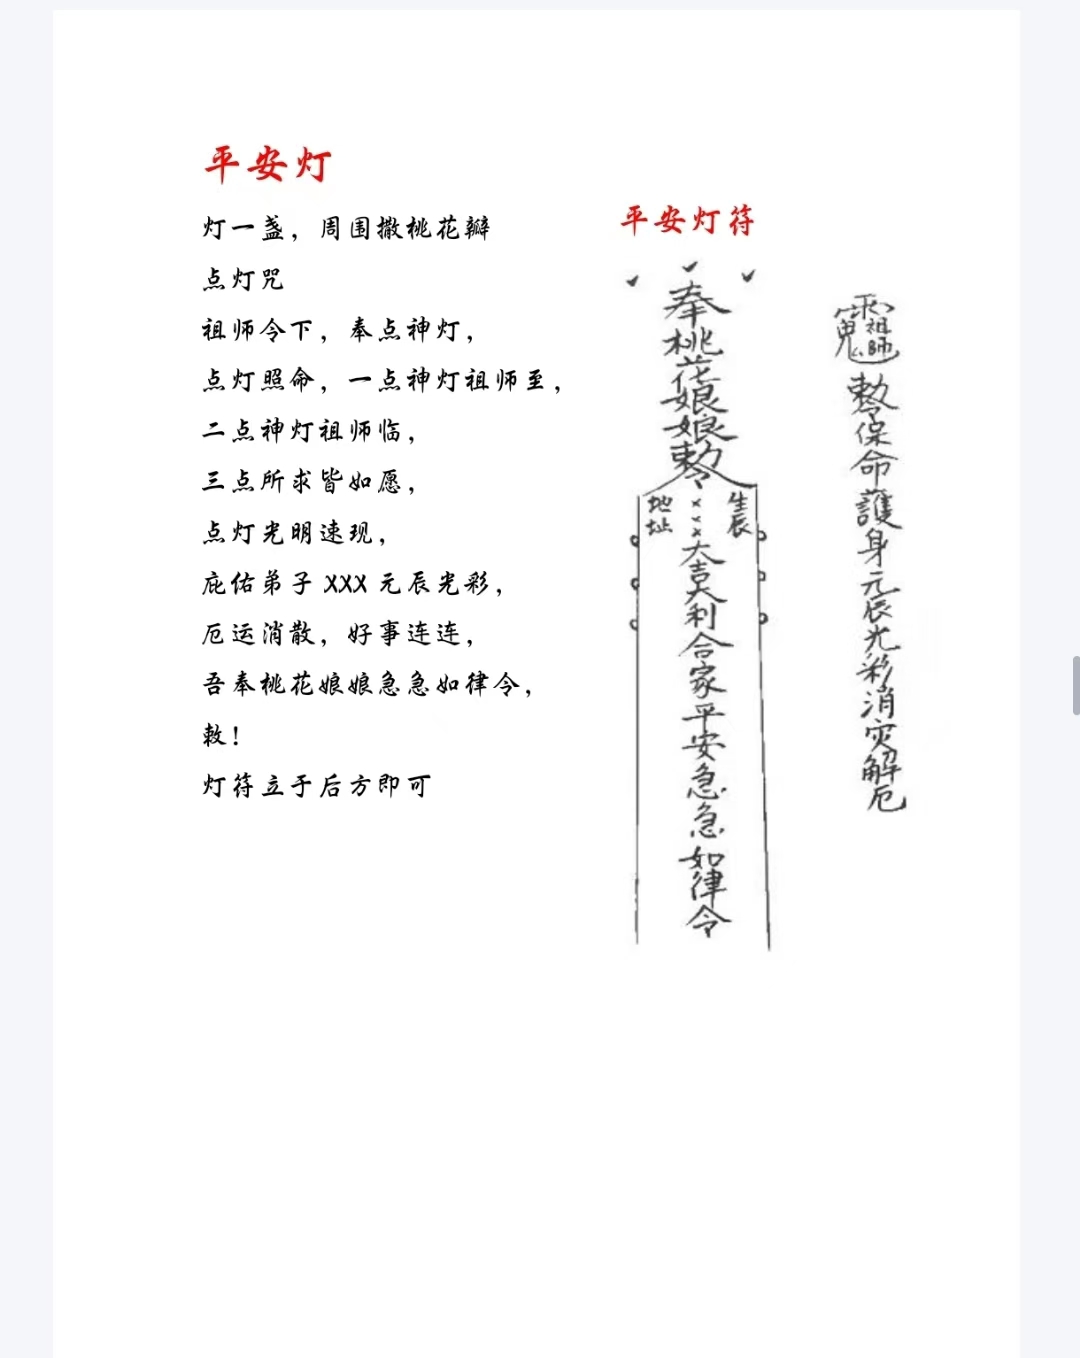 平安灯
灯一盏，周围撒桃花瓣
点灯咒
祖师令下，奉点神灯，
点灯照命，一点神灯祖师至，
二点神灯祖师临，
三点所求皆如愿，
点灯光明速现，
庇佑弟子 XXX 元辰光彩，
厄运消散，好事连连，
吾奉桃花娘娘急急如律令，
敕！
灯符立于后方即可
平安灯符
奉桃花娘娘敕令
地址
xxx大吉大利合家平安急急如律令
生辰
祖師
敕令保命護身元辰光彩消灾解厄